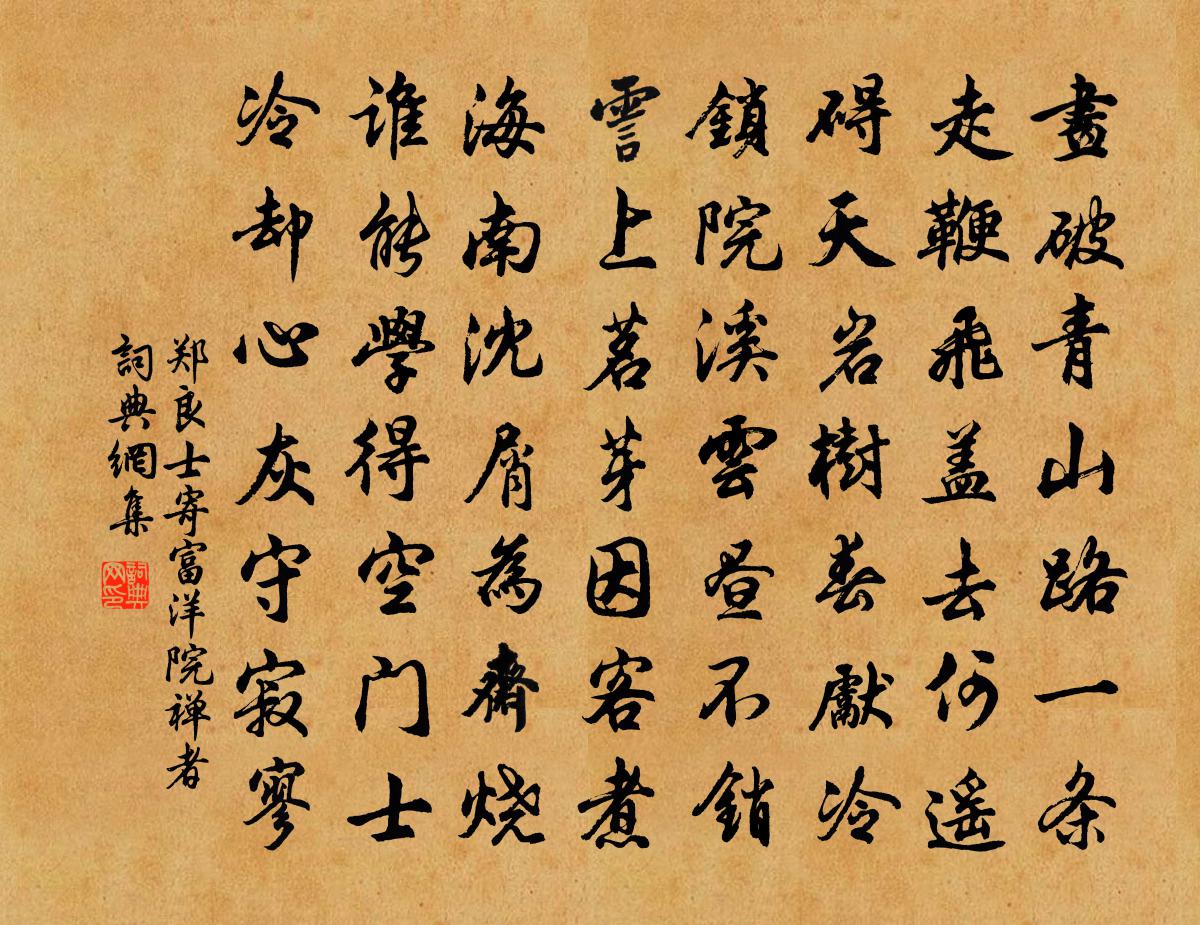 畫破青山路一条
走鞭飛盖去何遥
碍天岩樹春獻冷
鎖院溪雲昼不銷
霅上茗芽因客煮
海南沈屑為齋烧
谁能學得空门士
冷却心灰守寂寥
郑良士寄富洋院禅者
詞典網集
詞典网印